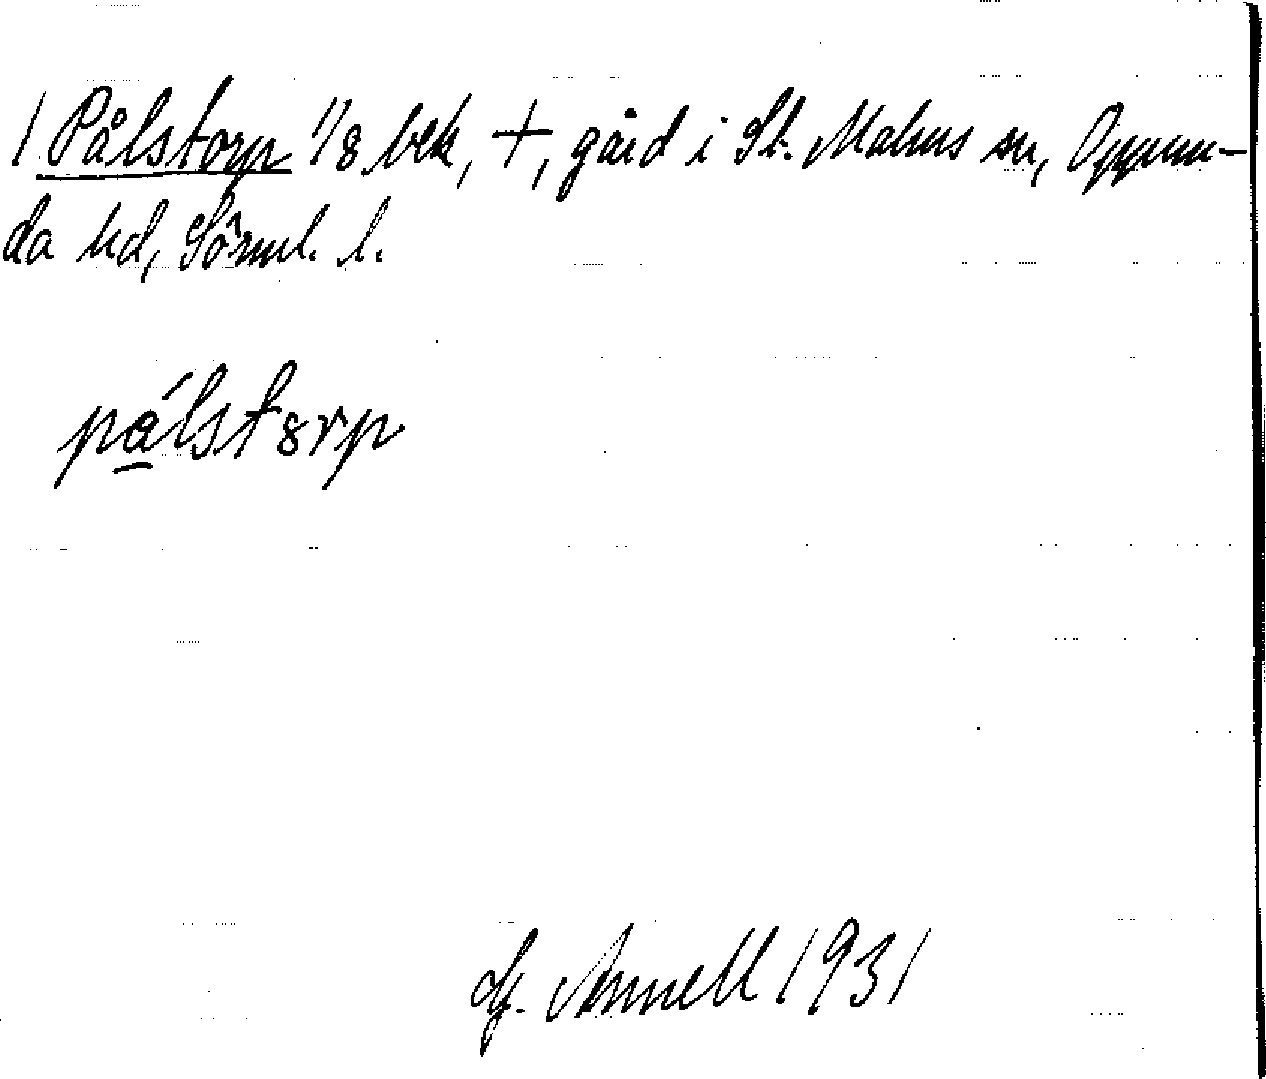 1 Pålstorp 1/8 bek, +, gård i St. Malms sn, Oppun-
da hd, Sörml. l.
pa̲ʹlstȣrp
G. Annell 1931